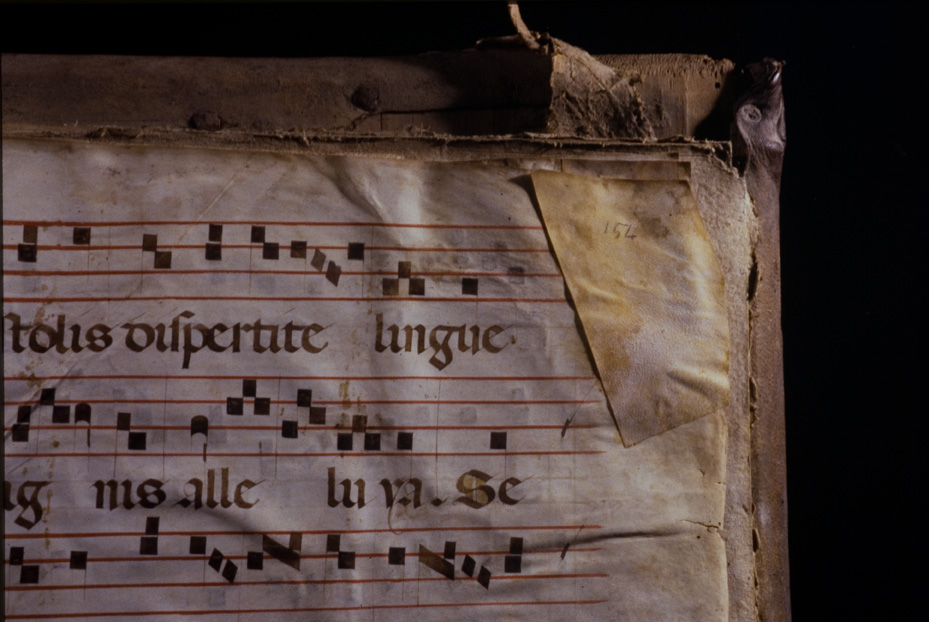 154
stolis dispertite lingue
ag nis alle lu ya. Se